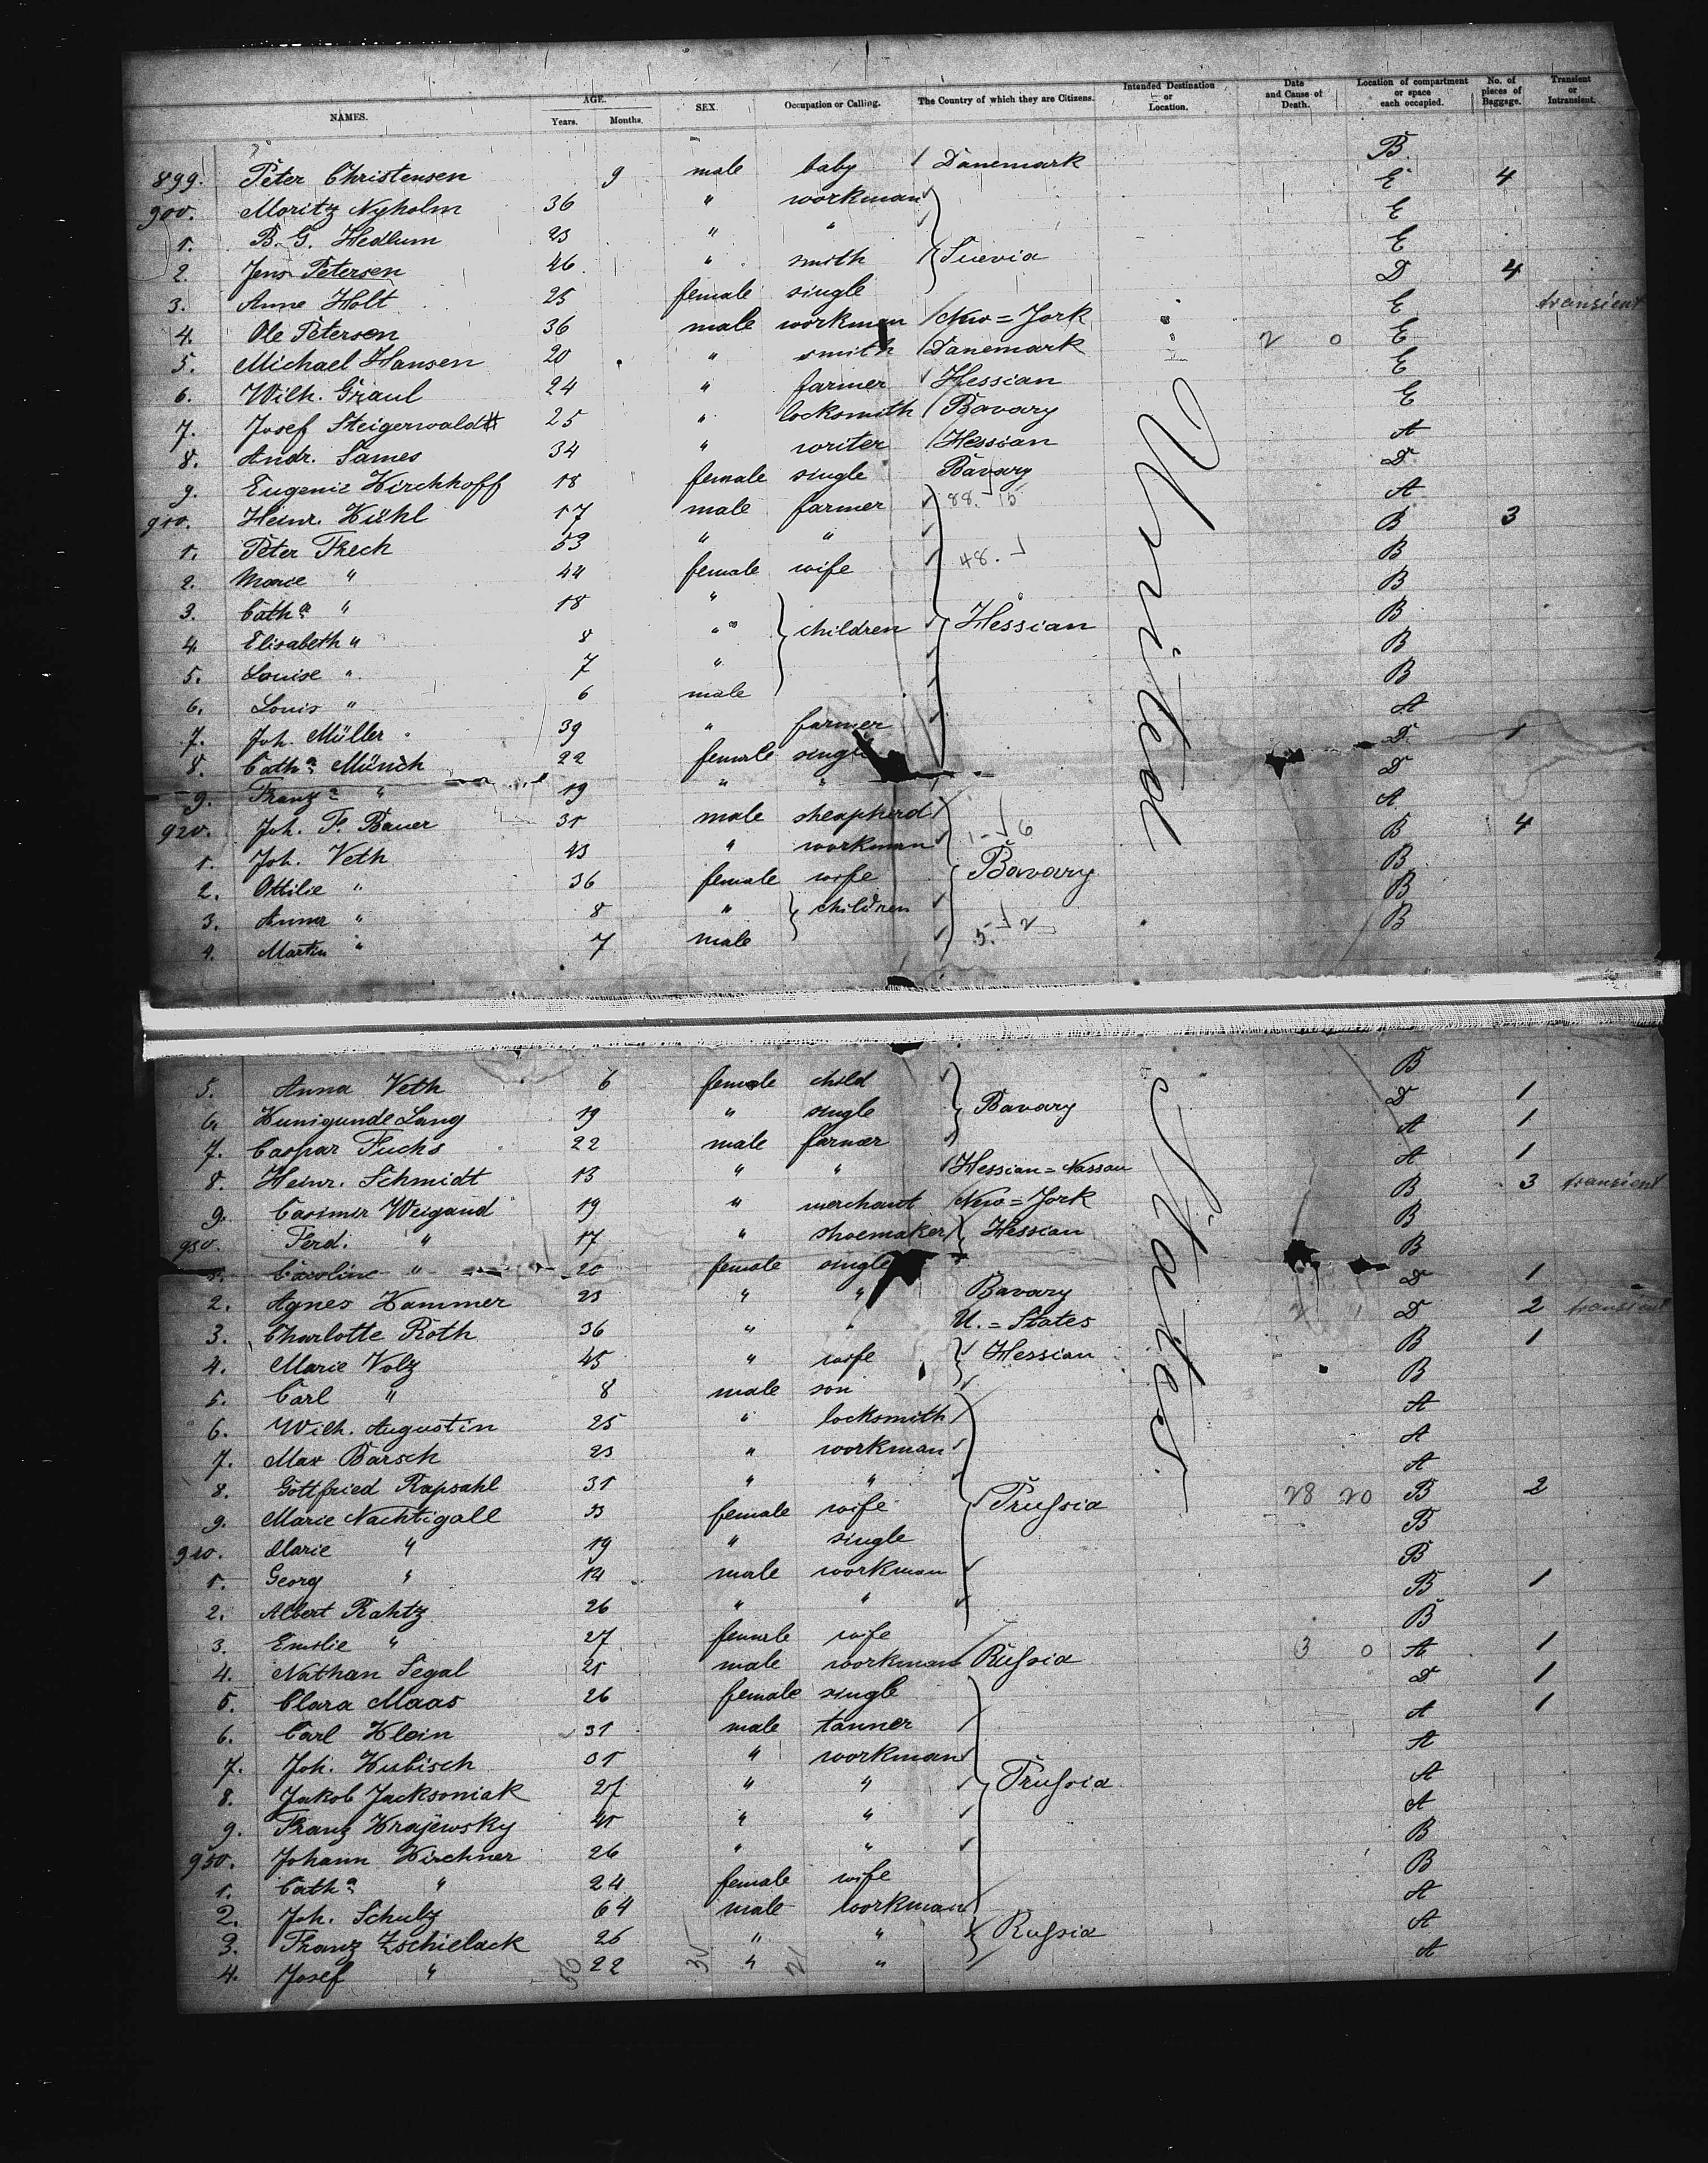 NAMES. AGE. Years. Months. SEX. Occupation or Calling. The Country of which they are Citizens. Intended Destination or Location. Date and Cause of Death. Location of compartment or space each occupied. No. of pieces of Baggage. Transient or Intransient.
899. Peter Christensen 9 male baby Danemark B.
900. Moritz Nyholm 36 " workman E 4
1. B. G. Hedlum 23 " " E
2. Jens Petersen 46 " smith Suevia E
3. Anne Holt 25 female single D 4
4. Ole Petersen 36 male workman New=York E transient
5. Michael Hansen 20 " smith Danemark 2 0 E
6. Wilh. Graul 24 " farmer Hessian E
7. Josef Steigerwald 25 " locksmith Bavary E
8. Andr. Sames 34 " writer Hessian A
9. Eugenie Kirchhoff 18 female single Bavary D
910. Heinr. Kühl 17 male farmer 88. 15 A
1. Peter Frech 53 " " B 3
2. Marie " 44 female wife 48. B
3. Catha " 18 " B
4. Elisabeth " 8 " children Hessian B
5. Louise " 7 " B
6. Louis " 6 male B
7. Joh. Müller 39 " farmer A
8. Catha Münch 22 female single D 1
9. Franza " 19 " " D
920. Joh. F. Bauer 31 male sheapherd A
1. Joh. Veth 43 " workman 1- 6 B 4
2. Ottilie " 36 female wife Bavary B
3. Anna " 8 " children B
4. Martin " 7 male 5. 2 B
United
5. Anna Veth 6 female child B
6. Kunigunde Lang 19 " single Bavary D 1
7. Caspar Fuchs 22 male farmer A 1
8. Heinr. Schmidt 13 " " Hessian=Nassau A 1
9. Casimir Weigand 19 " merchant New=York B 3 transient
930. Ferd. " 17 " shoemaker Hessian B
1. Caroline " 20 female single B
2. Agnes Hammer 23 " " Bavary D 1
3. Charlotte Roth 36 " " U.=States 2 1 D 2 transient
4. Marie Volz 45 " wife Hessian B 1
5. Carl " 8 male son B
6. Wilh. Augustin 25 " locksmith A
7. Max Barsch 23 " workman A
8. Gottfried Rapsahl 31 " " A
9. Marie Nachtigall female wife Prussia 28 20 B 2
940. Marie " 19 " single B
1. Georg " 14 male workman B
2. Albert Rahtz 26 " " B 1
3. Emilie " 27 female wife B
4. Nathan Segal 21 male workman Russia 3 0 A 1
5. Clara Maas 26 female single D 1
6. Carl Klein 31 male tanner A 1
7. Joh. Kubisch 31 " workman A
8. Jakob Jacksoniak 27 " " Prussia A
9. Franz Krajewsky 41 " " A
950. Johann Kirchner 26 " " B
1. Catha " 24 female wife B
2. Joh. Schulz 64 male workman A
3. Franz Zschielack 26 " " Russia A
4. Josef " 22 " " A
States.
50 30 21